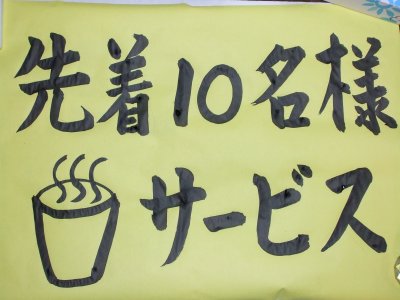 先着10名様
サービス